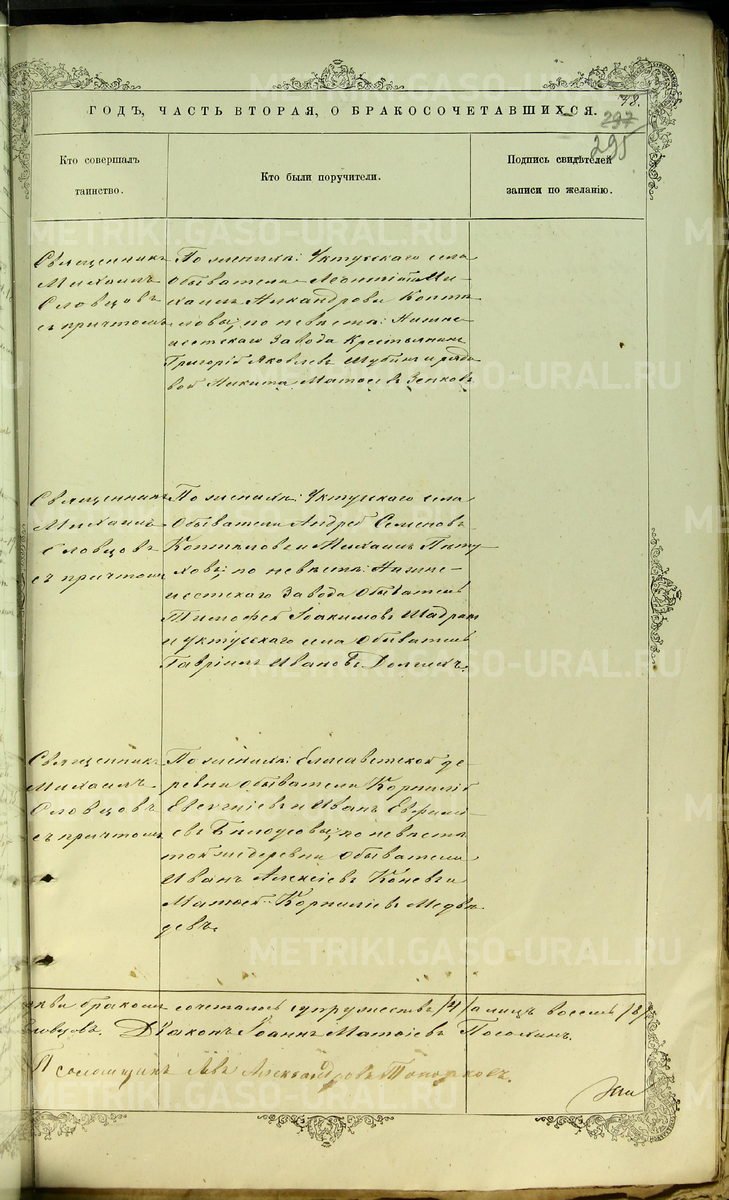 ГОДЪ, ЧАСТЬ ВТОРАЯ, О БРАКОСОЧЕТАВШИХСЯ.
295
Кто совершалъ
таинство.
Кто были поручители.
Подпись свидѣтелей
записи по желанію.
Священникъ
Михаилъ
Словцовъ
съ причтомъ
По женихѣ: Уктусскаго села
обыватели Леонтій и Ми-
хаилъ Никандровы Коптя-
ловы; по невѣстѣ: Нижне-
исетскаго Завода Крестьянинъ
Григорій Яковлевъ Шубинъ и рядо-
вой Никита Матѳеевъ Зенковъ
Священникъ
Михаилъ
Словцовъ
съ причтомъ
По женихѣ: Уктусскаго села
обыватели Андрей Семеновъ
и Михаилъ
по невѣстѣ: Нижне-
исетскаго Завода обыватель
Тимофей Іоакимовъ
и Уктусскаго села обыватель
Гавріилъ Ивановъ
Священникъ
Михаилъ
Словцовъ
съ причтомъ
По женихѣ: Елисаветской де-
ревни обыватели Корнилій
Евгеніевъ и Иванъ Евфимі-
евъ Бѣлоусовы; по невѣстѣ
той же деревни обыватели
Иванъ Алексіевъ Коневъ и
Матѳей Корниліевъ Медвѣ-
девъ.
бракомъ сочеталось супружествъ /4/ а лицъ восемь /8/
Словцовъ. Діаконъ Іоаннъ Матѳіевъ
Псаломщикъ Левъ Александровъ Топорковъ.
METRIKI.GASO-URAL.RU